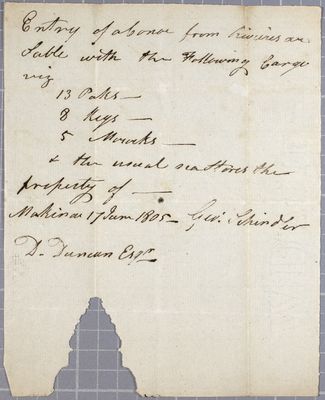 Entry of a Canoe from Rivière au
Sable with the Following Cargo
viz
13 Paks —
8 Kegs —
5 Mococks —
& the usual sea Stores the
property of —
Makinac 17 June 1805 — Geo. Schindler
D. Duncan Esqr